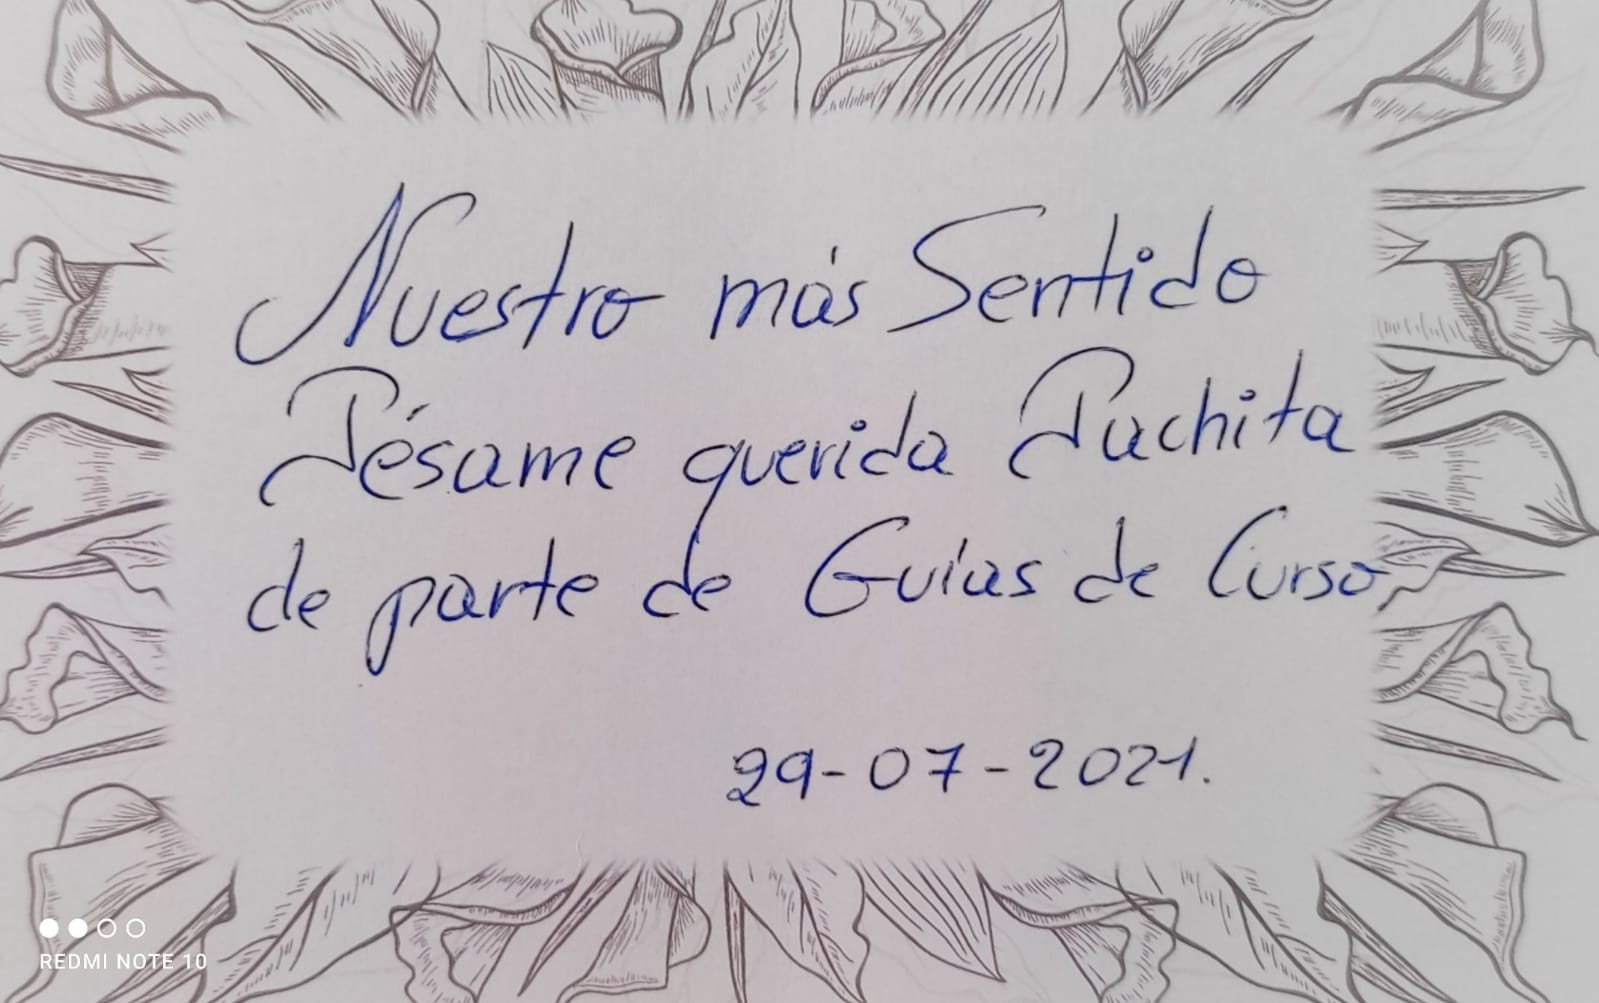 Nuestro más Sentido
Pésame querida Pachita
de parte de Guías de Curso,
29-07-2021.
REDMI NOTE 10